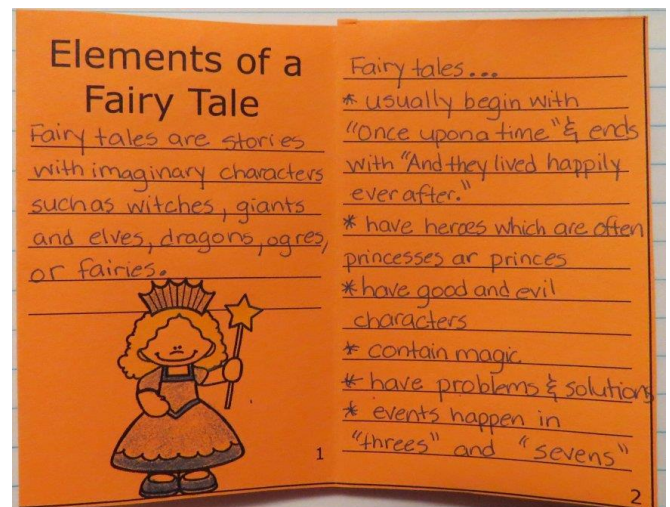 Elements of a
Fairy Tale
Fairy tales are stories
with imaginary characters
such as witches, giants
and elves, dragons, ogres,
or fairies.
1
Fairy tales...
* usually begin with
"Once upon a time" & ends
with "And they lived happily
ever after."
* have heroes which are often
princesses ar princes
* have good and evil
characters
* contain magic
* have problems & solutions
* events happen in
"threes" and "sevens"
2